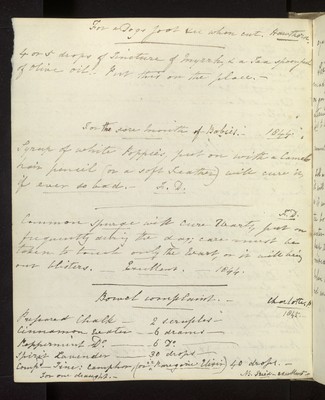 For a Dogs foot &c when cut. Hawthorn
4 or 5 drops of Tincture of Myrrh, & a Tea spoonful
of Olive oil. Put this on the place. —
For the sore mouths of Babies. — 1844.
Syrup of white Poppies, put on with a Camels
hair pencil (or a soft Feather) will cure it
if ever so bad. —
Common Spurge will cure Warts, put on
frequently during the day; care must be
taken to touch only the Wart, or it will bring
out blisters. — Excellent. — 1844.
Bowel complaint. — Charlotte
1845.
Prepared Chalk — 2 scruples
Cinnamon Water — 6 drams —
Peppermint Do — 6 Do
Spirit Lavender — 30 drops —
Comp. Tinc: Camphor (or Paregoric Elixir) 40 drops. —
For one draught. —